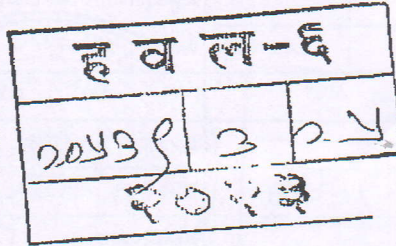 ह व ल - ६
२०५३९ ३ २५
२०१३